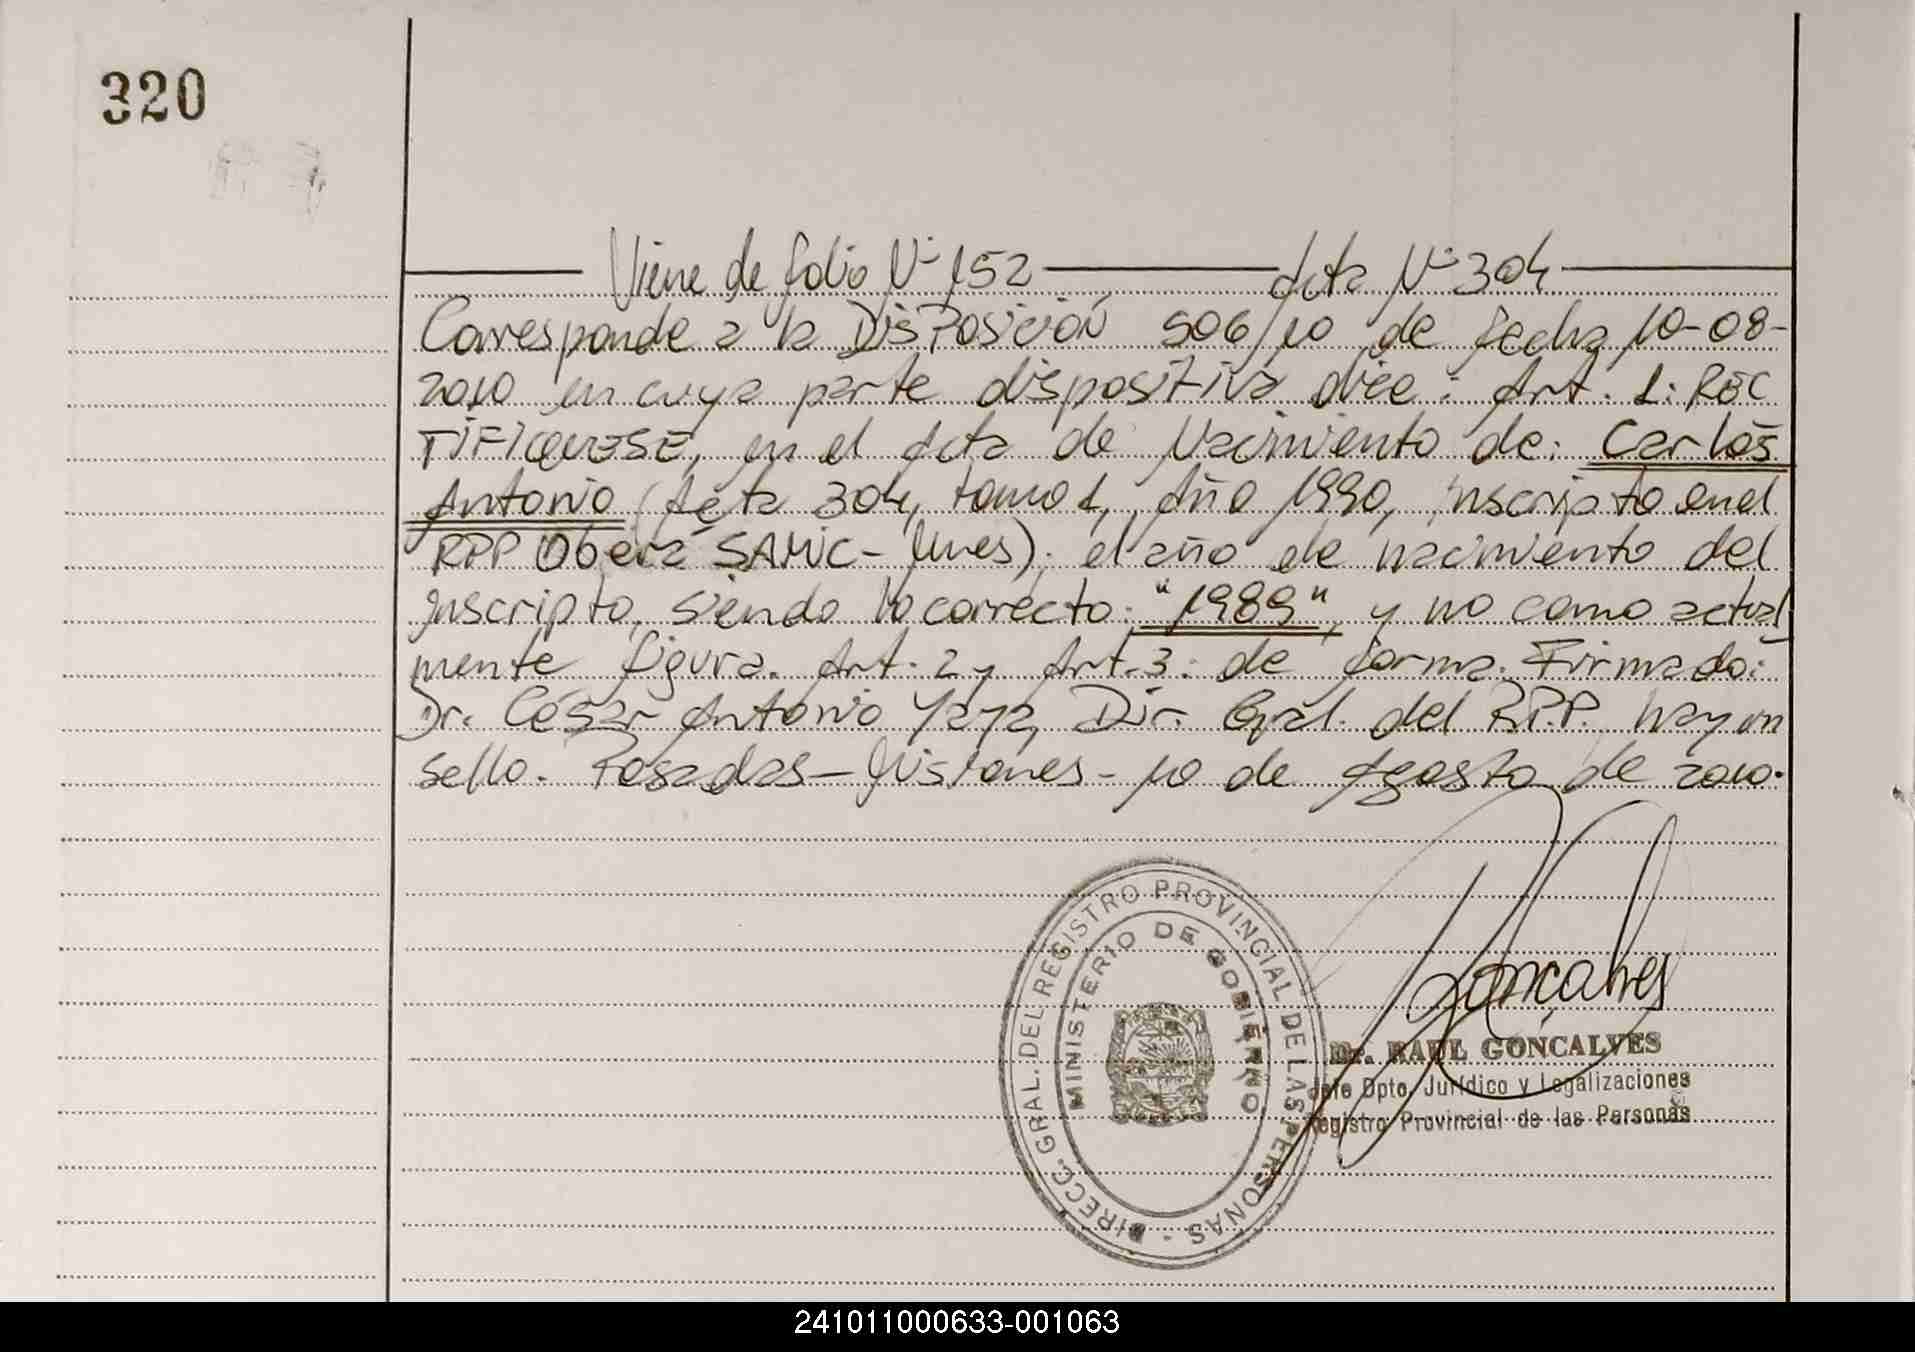 320
Viene de folio Nº 152 Acta Nº 304
Corresponde a la DISPOSICIÓN 506/10 de fecha 10-08-
2010 en cuya parte dispositiva dice: Art. 1: REC
TIFIQUESE, en el Acta de Nacimiento de: Carlos
Antonio (Acta 304, tomo 1, Año 1990, inscripto en el
RPP Oberá SAMIC - Mnes); el año de nacimiento del
inscripto, siendo lo correcto: "1989", y no como actual
mente figura. Art. 2 y Art. 3: de forma. Firmado:
Dr. César Antonio Yaya, Dir. Gral. del R.P.P. hay un
sello. Posadas - Misiones - 10 de Agosto de 2010.
DIRECC. GRAL. DEL REGISTRO PROVINCIAL DE LAS PERSONAS -
MINISTERIO DE GOBIERNO
Goncalves
Dr. RAUL GONÇALVES
Jefe Dpto. Jurídico y Legalizaciones
Registro Provincial de las Personas
241011000633-001063